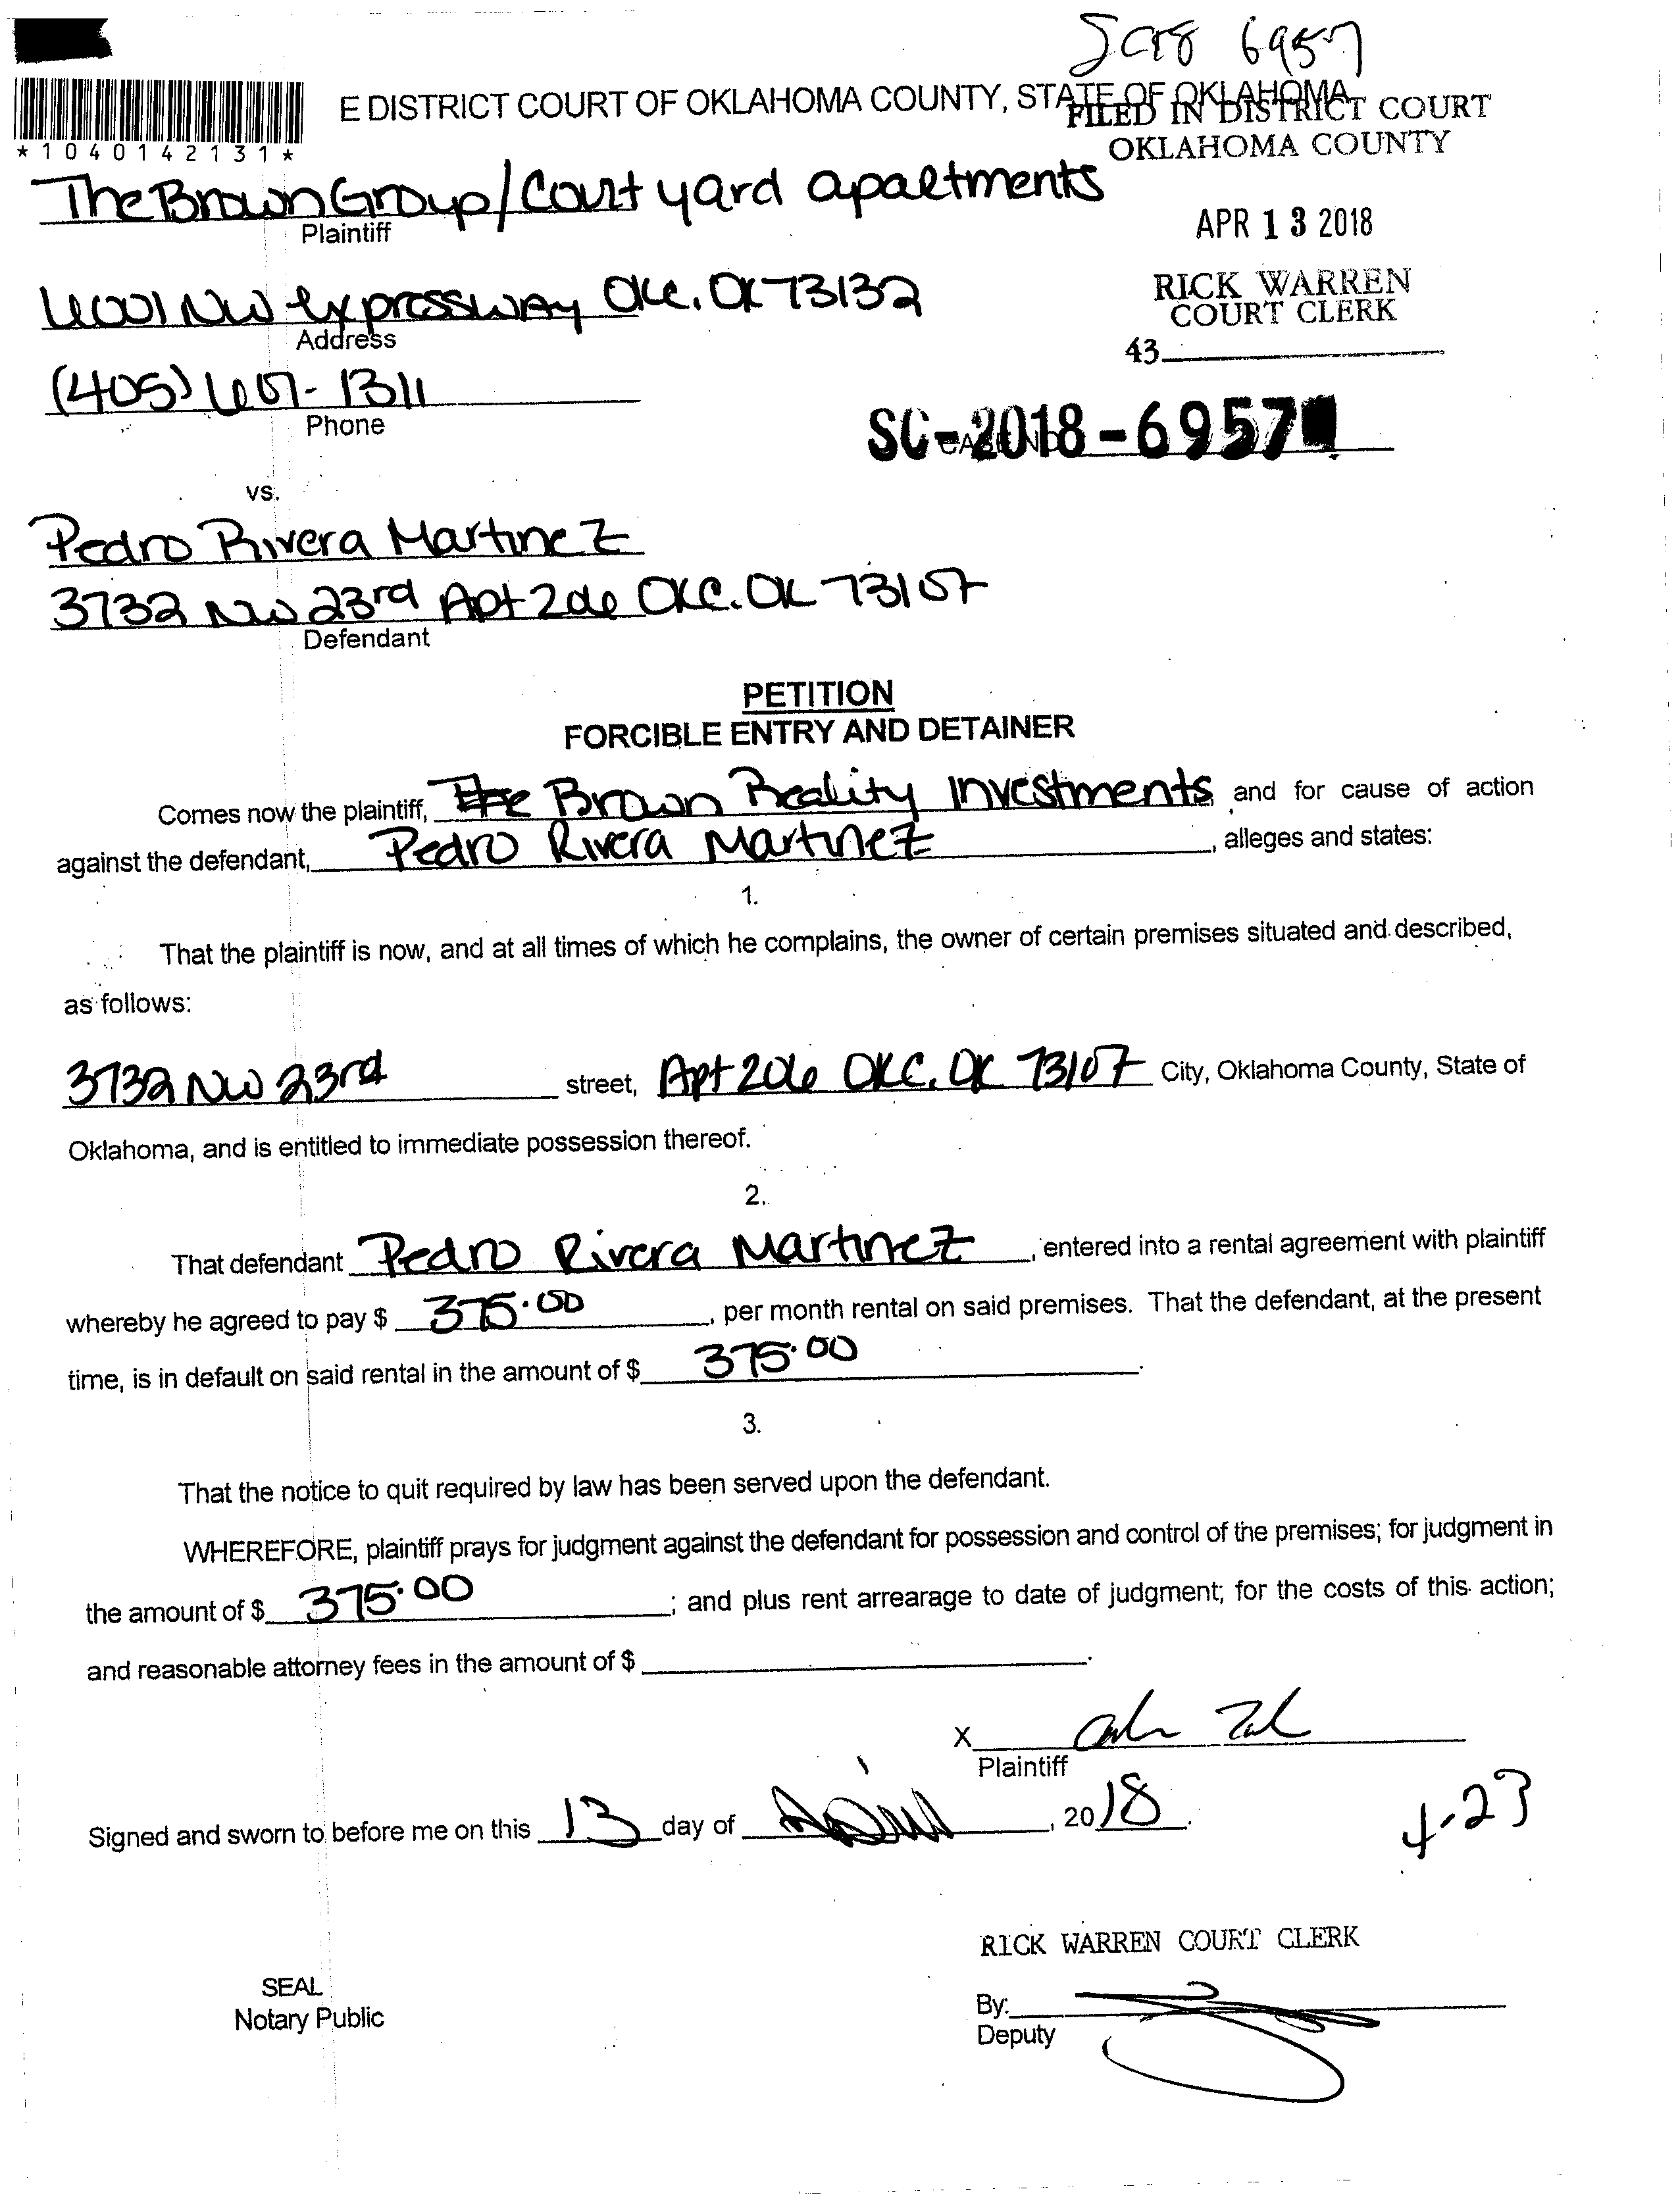 SC18 6957
E DISTRICT COURT OF OKLAHOMA COUNTY, STATE OF OKLAHOMA
FILED IN DISTRICT COURT
OKLAHOMA COUNTY
*1040142131*
The Brown Group/Court yard apartments
Plaintiff
APR 13 2018
6001 NW expressway OKC. OK 73132
Address
RICK WARREN
COURT CLERK
43
(405) 607-1311
Phone
SC-2018-6957
vs.
Pedro Rivera Martinez
3732 NW 23rd Apt 206 OKC. OK 73107
Defendant
PETITION
FORCIBLE ENTRY AND DETAINER
Comes now the plaintiff, The Brown Reality Investments and for cause of action
against the defendant, Pedro Rivera Martinez, alleges and states:
1.
That the plaintiff is now, and at all times of which he complains, the owner of certain premises situated and described,
as follows:
3732 NW 23rd street, Apt 206 OKC. OK 73107 City, Oklahoma County, State of
Oklahoma, and is entitled to immediate possession thereof.
2.
That defendant Pedro Rivera Martinez, entered into a rental agreement with plaintiff
whereby he agreed to pay $ 375.00, per month rental on said premises. That the defendant, at the present
time, is in default on said rental in the amount of $ 375.00.
3.
That the notice to quit required by law has been served upon the defendant.
WHEREFORE, plaintiff prays for judgment against the defendant for possession and control of the premises; for judgment in
the amount of $ 375.00; and plus rent arrearage to date of judgment; for the costs of this action;
and reasonable attorney fees in the amount of $.
X
Plaintiff
Signed and sworn to before me on this 13 day of April, 2018.
4-23
RICK WARREN COURT CLERK
SEAL
Notary Public
By:
Deputy